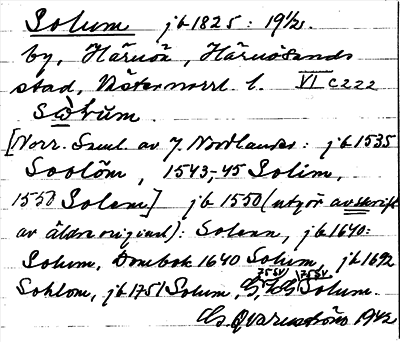 Solum jb 1825: 19 1/2.
by, Härnön, Härnösands
stad, Västernorrl. l. VI C222
sὼlŭm.
[Norr. Saml. av J. Nordlander: jb 1535
Soolöm, 1543,-45 Solim,
1550 Solem] jb 1550 (utgör avskrift
av äldre original): Solenn, jb 1640:
Solum, Dombok 1640 Solum, jb 1692
Sohlom, jb 1751 Solum, Solum.
Gs. Qvarnström 1942